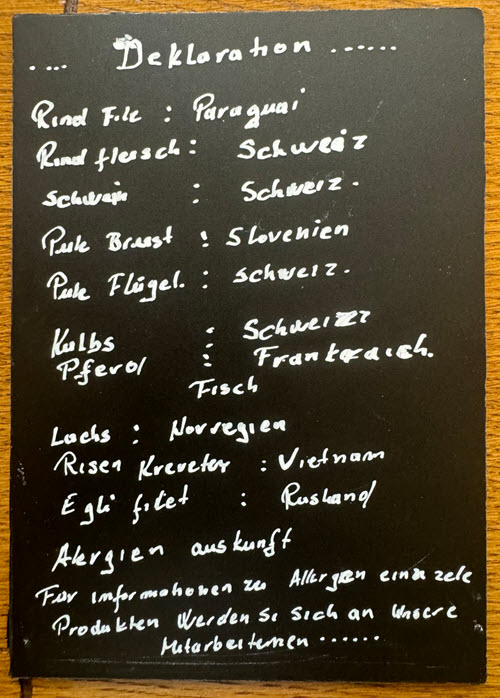 .... Deklaration ......
Rind File : Paraguai
Rindfleisch : Schweiz
Schwein : Schweiz.
Pute Brust : Slovenien
Pute Flügel. : Schweiz.
Kalbs : Schweiz
Pferd : Frankreich.
Fisch
Lachs : Norvegien
Risen Kreveten : Vietnam
Egli filet : Rusland
Alergien auskunft
Für informationen zu Allergien einzele
Produkten Werden si sich an Unsere
Mitarbeiternen ......